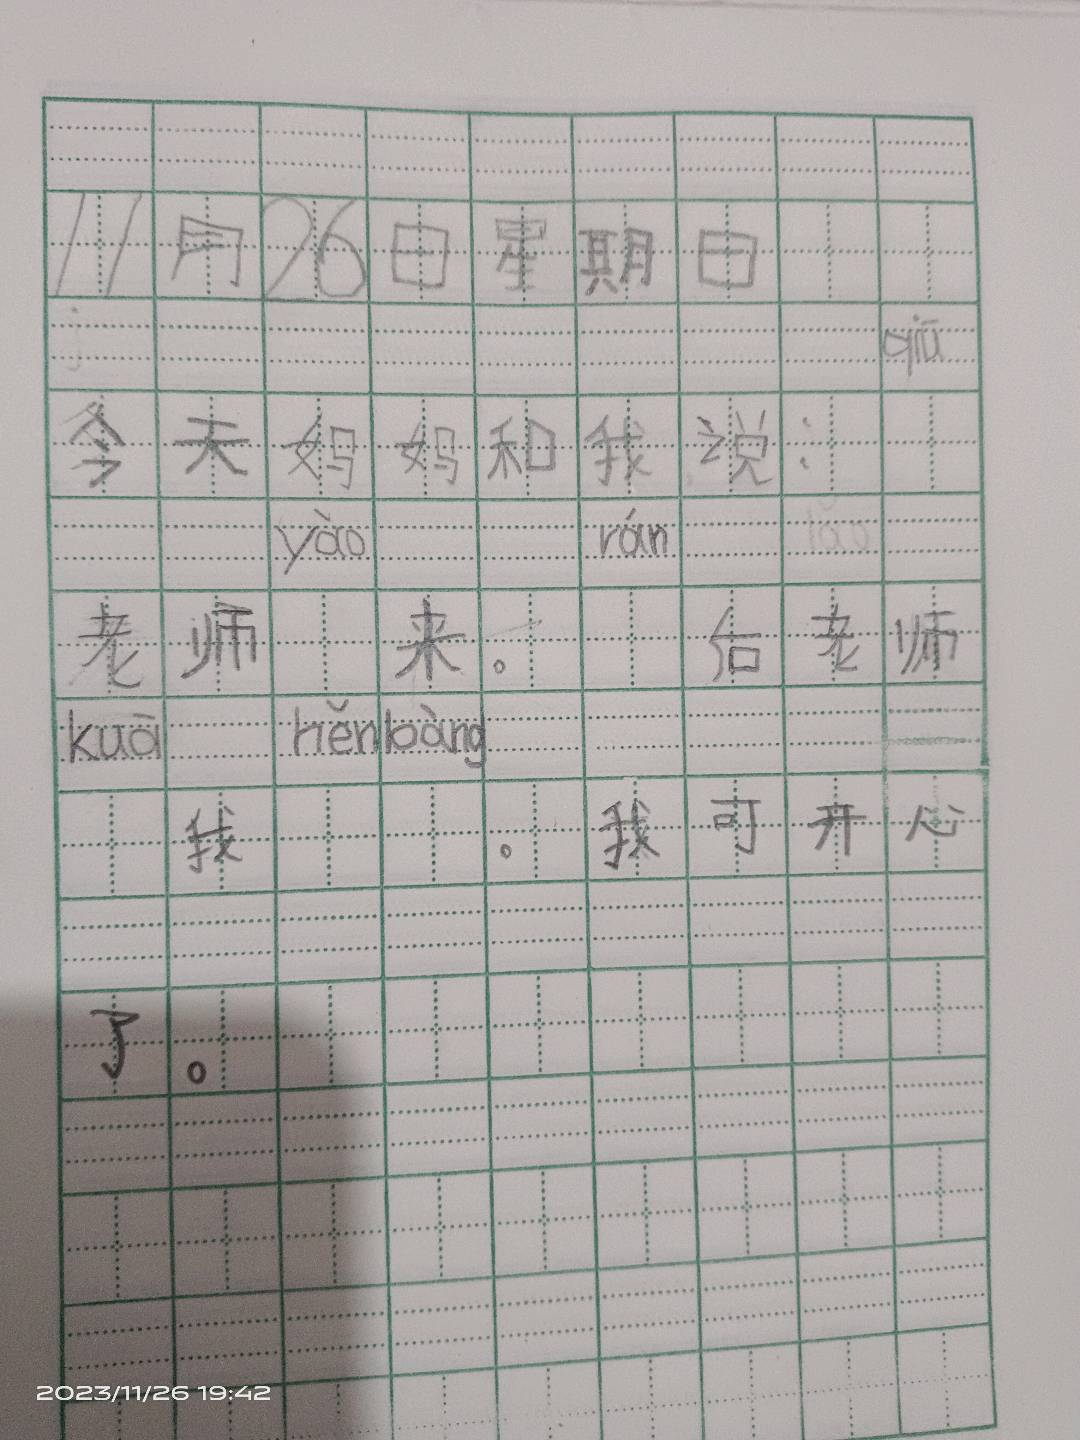 11月26日星期日
qiū
今天妈妈和我说:
yào rán lǎo
老师 来。 后老师
kuā hěn bàng
我 。我可开心
了。
2023/11/26 19:42